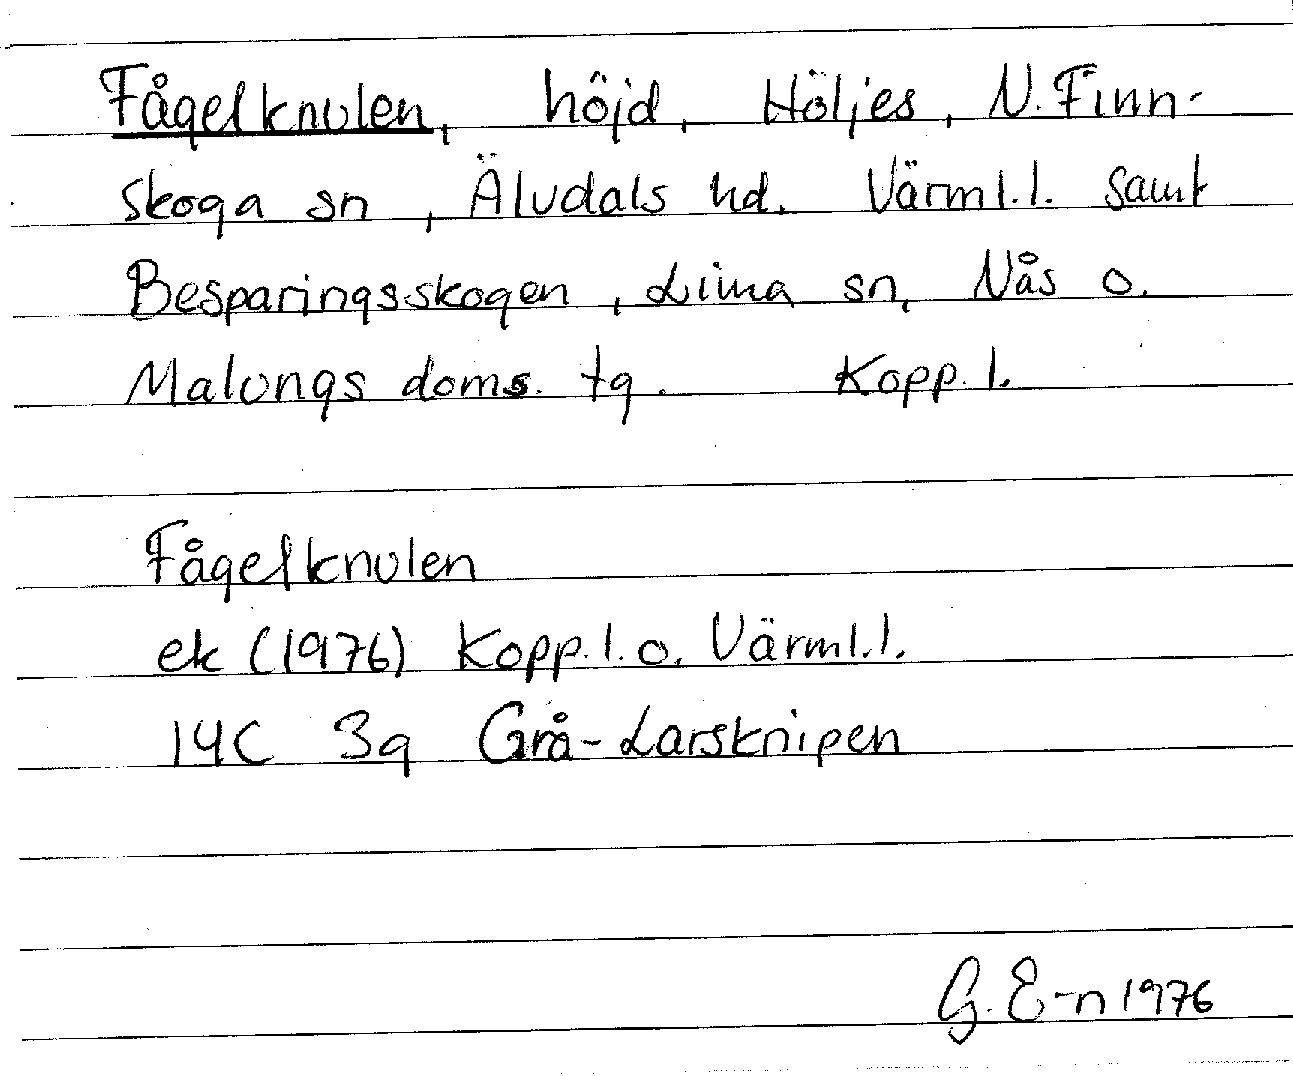 Fågelknulen, höjd, Höljes, N. Finn-
skoga sn, Älvdals hd. Värml.l. samt
Besparingsskogen, Lima sn, Nås o.
Malungs doms. tg. Kopp.l.
Fågelknulen
ek (1976) Kopp.l.o. Värml.l.
14C 3g Grå-Larsknipen
G. E-n 1976